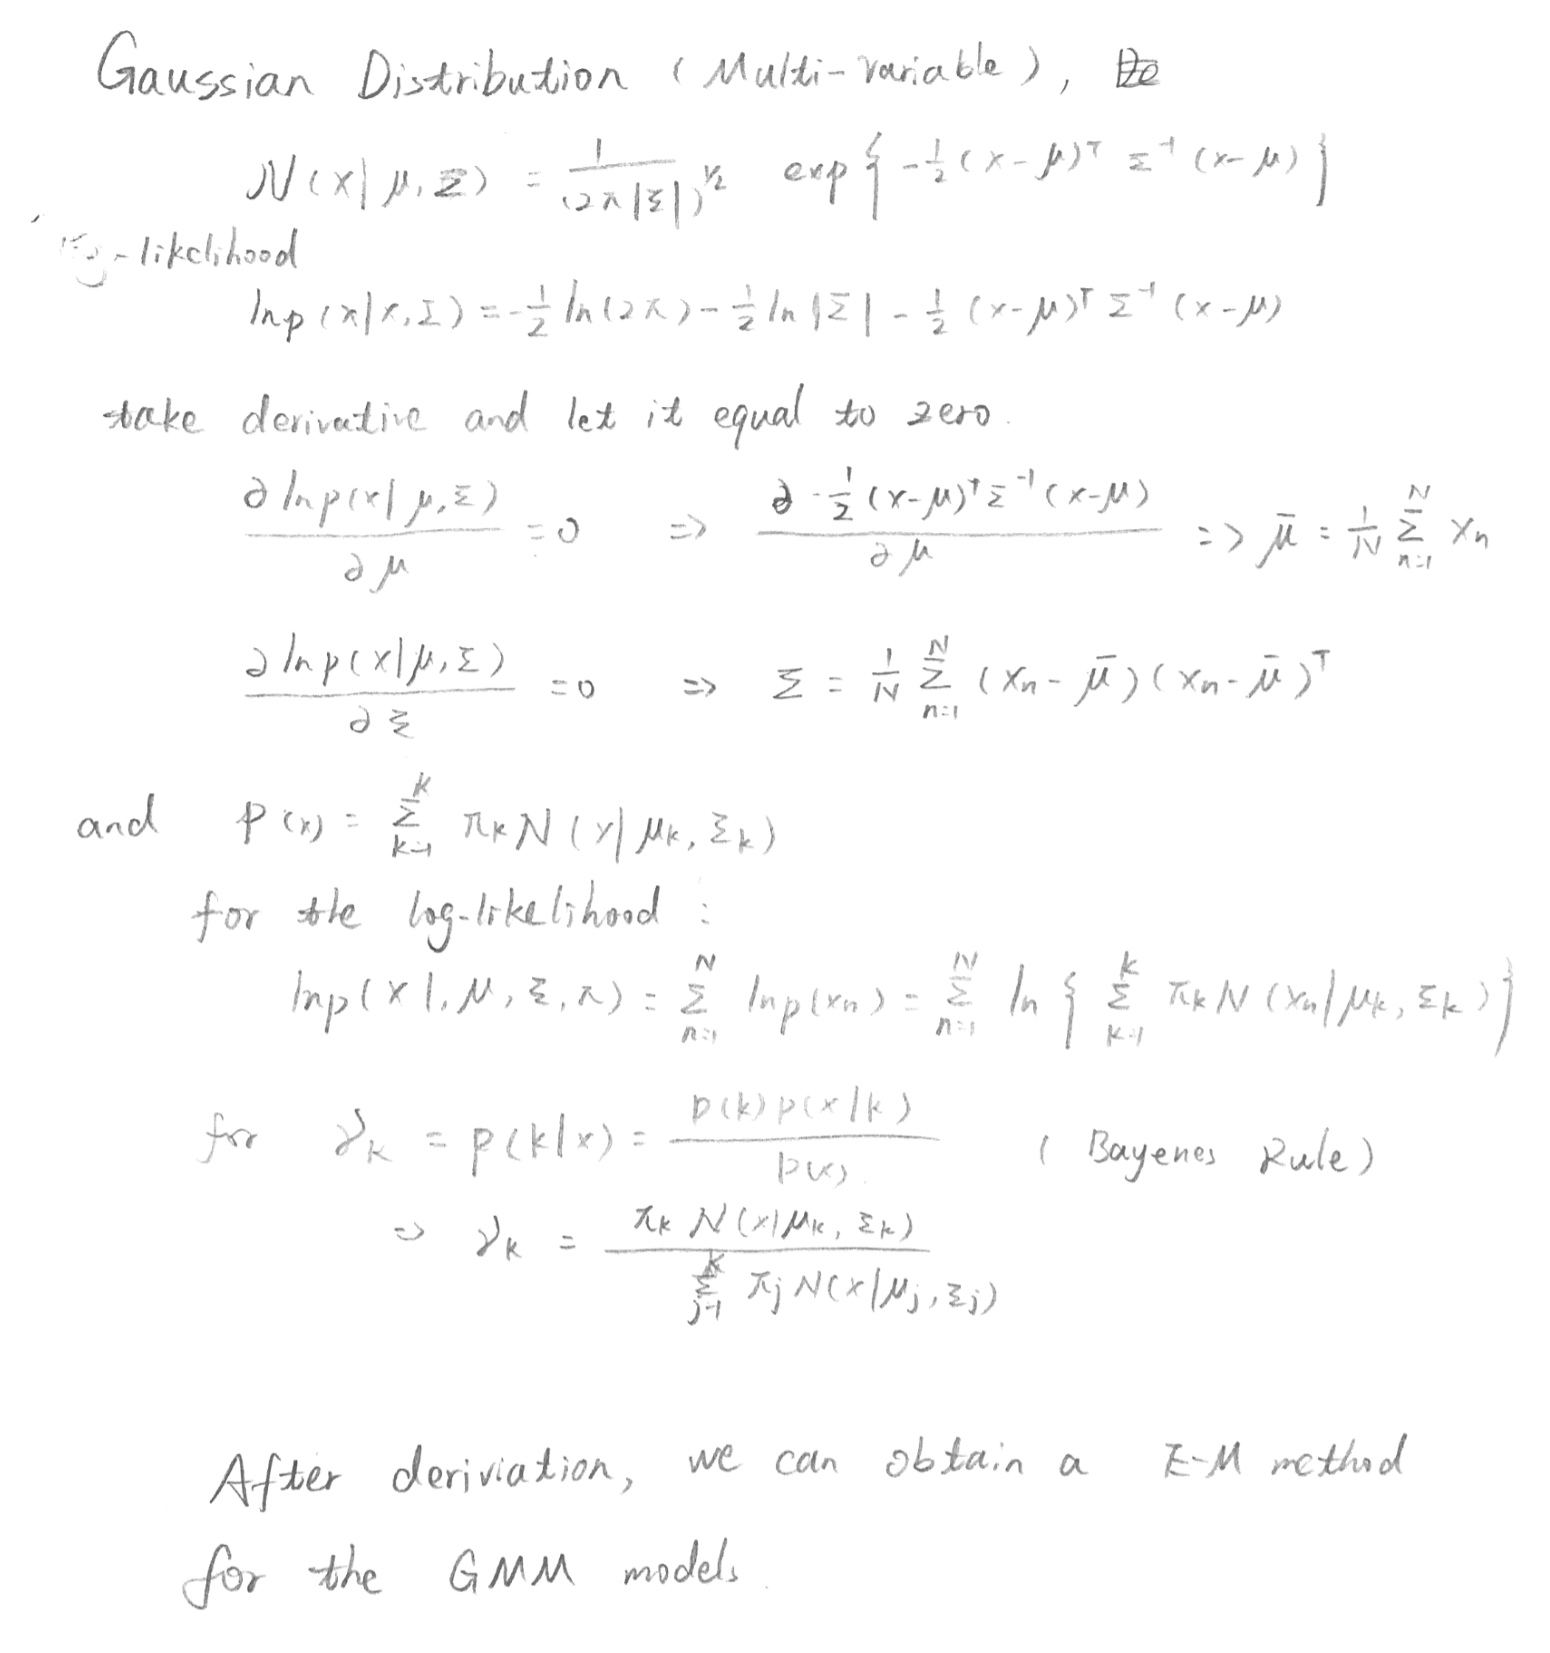 Gaussian Distribution (Multi-variable),
N(x|μ,Σ) = 1/(2π|Σ|)^1/2 exp{-1/2(x-μ)^T Σ^-1 (x-μ)}
-likelihood
lnp(x|x,Σ) = -1/2 ln(2π) - 1/2 ln|Σ| - 1/2 (x-μ)^T Σ^-1 (x-μ)
take derivative and let it equal to zero.
∂lnp(x|μ,Σ)/∂μ = 0 => ∂ -1/2 (x-μ)^T Σ^-1 (x-μ)/∂μ => μ̄ = 1/N Σ_{n=1}^N x_n
∂lnp(x|μ,Σ)/∂Σ = 0 => Σ = 1/N Σ_{n=1}^N (x_n - μ̄)(x_n - μ̄)^T
and p(x) = Σ_{k=1}^K π_k N(x|μ_k, Σ_k)
for the log-likelihood :
lnp(x|, μ, Σ, π) = Σ_{n=1}^N lnp(x_n) = Σ_{n=1}^N ln { Σ_{k=1}^K π_k N(x_n|μ_k, Σ_k)}
for γ_k = p(k|x) = p(k)p(x|k)/p(x) (Bayenes Rule)
=> γ_k = π_k N(x|μ_k, Σ_k)/Σ_{j=1}^K π_j N(x|μ_j, Σ_j)
After deriviation, we can obtain a E-M method
for the GMM models.